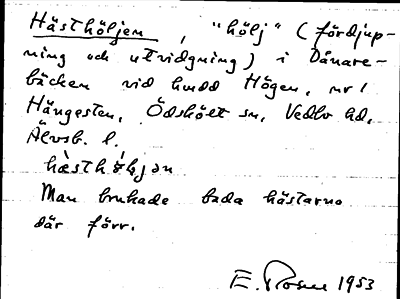 Hästhöljen, "hölj" (fördjup-
ning och utvidgning) i Dånare-
bäcken vid hmdd Högen, nr 1
Hängesten, Ödskölt sn, Vedbo hd,
Älvsb. l.
Man brukade bada hästarna
där förr.
E. Rosen 1953